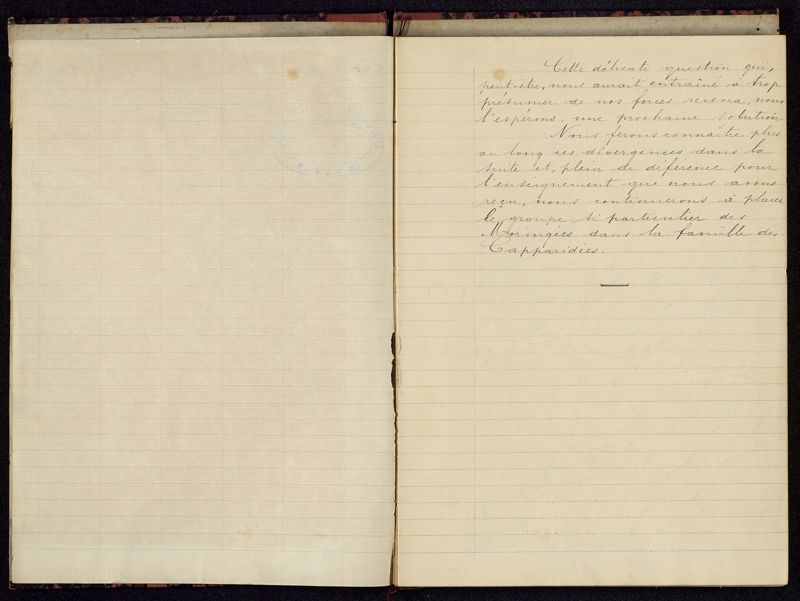 Cette délicate question qui,
peut-être, nous aurait entraîné à trop
présumer de nos forces, recevra, nous
l'espérons, une prochaine solution.
Nous ferons connaître plus
au long ces divergences dans la
suite et, plein de déférence pour
l'enseignement que nous avons
reçu, nous continuerons à placer
le groupe si particulier des
Moringées dans la famille des
Capparidées.